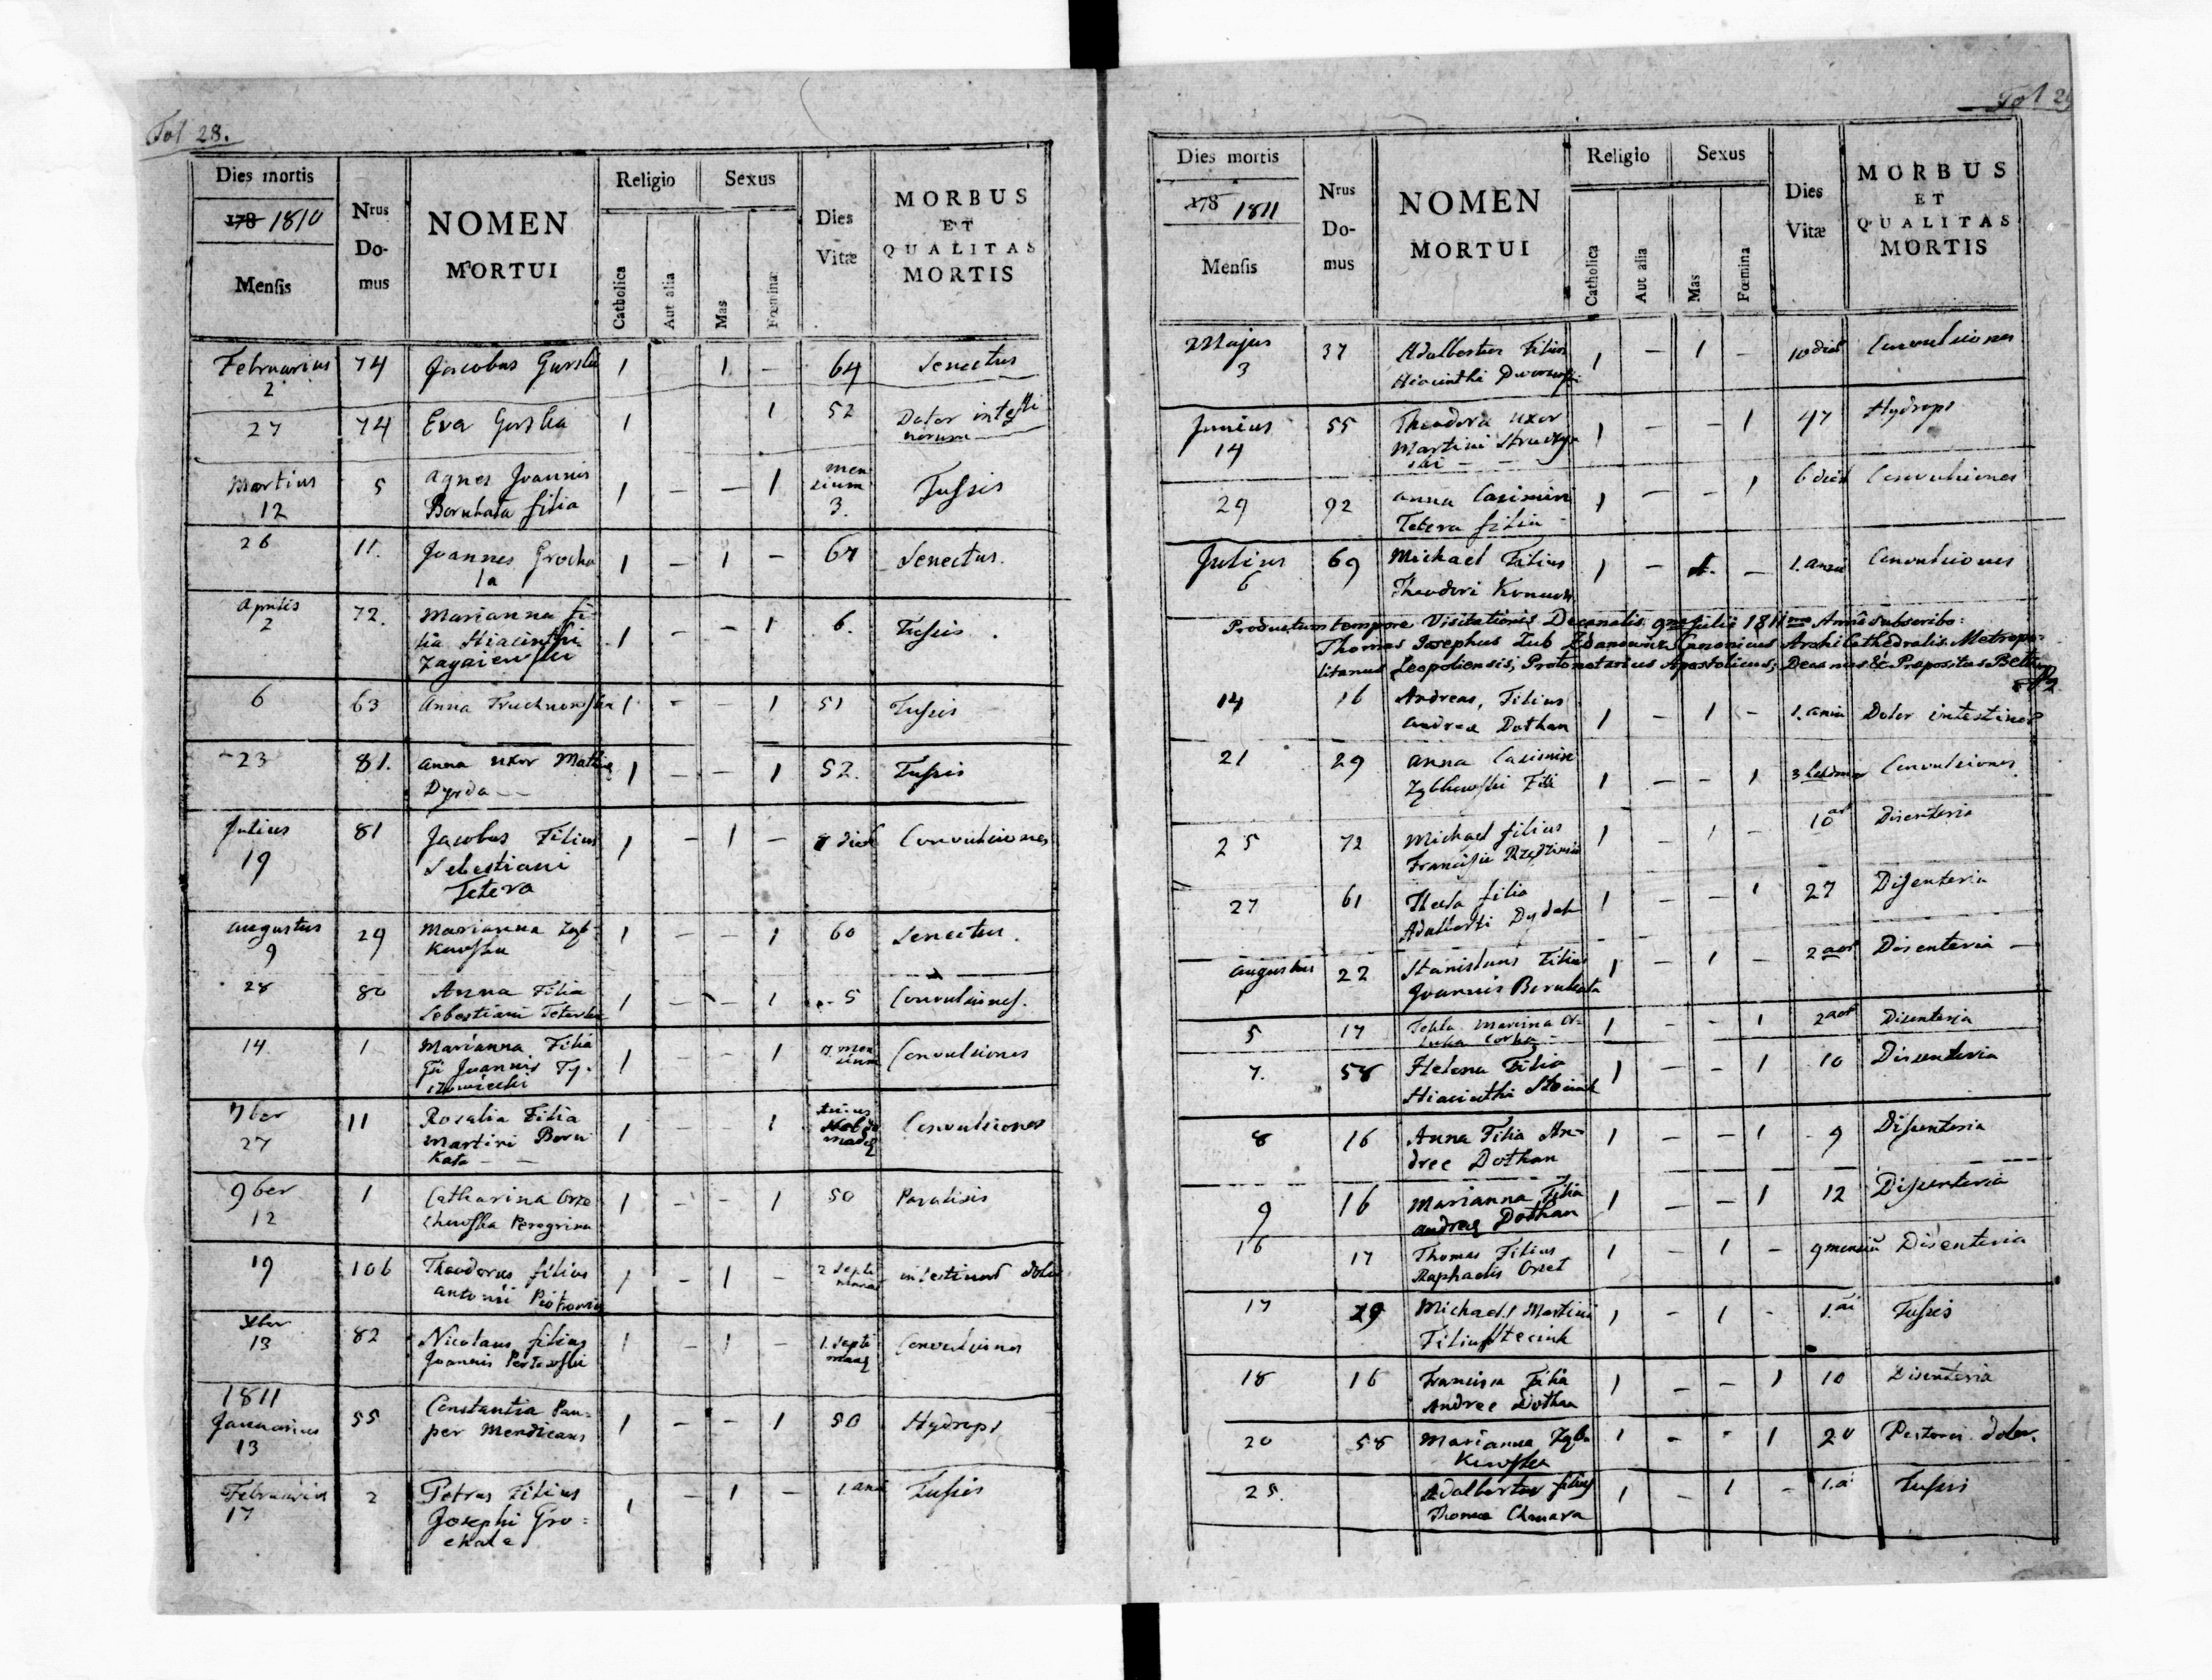 Fol 28.
Dies mortis
178 1810
Mensis
Nrus
Do-
mus
NOMEN
MORTUI
Religio
Sexus
Catholica
Aut alia
Mas
Fœmina
Dies
Vitæ
MORBUS
ET
QUALITAS
MORTIS
Februarius 74 Jacobus Gurski 1 1 – 64 Senectus
2
27 74 Eva Gurska 1 1 52 Dolor intesti
norum
Martius 5 Agnes Joannis 1 – – 1 men
12 Borukata filia sium Tussis
3.
26 11. Joannes Grocha 1 – 1 – 67 Senectus.
la
Aprilis 72. Marianna fi-
2 lia Hiacinthi 1 – – 1 6. Tussis.
Zagaiewski
6 63 Anna Truchnowska 1 – – 1 51 Tussis
23 81. Anna uxor Mathia 1 – – 1 52. Tussis
Dyrda –
Julius 81 Jacobus Filius 1 – 1 – dier Convulsiones
19 Sebestiani
Tetera
Augustus 29 Marianna Zyb- 1 – – 1 60 Senectus.
9 kowska
28 80 Anna Filia 1 – – 1 5 Convulsiones.
Sebestiani
14 1 Marianna Filia 1 – – 1 men Convulsiones
Joannis Ty- sium
szowiecki
7ber 11 Rosalia Filia 1 – – 1 Convulsiones
27 Martini Boru
kata – –
9ber 1 Catharina Orze 1 – – 1 50 Paralisis
12 chowska Peregrina
19 106 Theodorus filius 1 – 1 – 2 septi intestinor dolor
Antonii Piotrowicz
Xber 82 Nicolaus filius 1 – 1 – 1. septi Convulsiones
13 Joannis
1811
Januarius 55 Constantia Pau- 1 – – 1 50 Hydrops
13 per Mendicans
Februarius 2 Petrus Filius 1 – 1 – 1 ani Tussis
17 Josephi Gro=
chala
Fol 29
Dies mortis
178 1811
Mensis
Nrus
Do-
mus
NOMEN
MORTUI
Religio
Sexus
Catholica
Aut alia
Mas
Fœmina
Dies
Vitæ
MORBUS
ET
QUALITAS
MORTIS
Majus 37 Adalbertus Filius 1 – 1 – 10 dier Convulsiones
3 Hiacinthi
Junius 55 Theodora uxor 1 – – 1 47 Hydrops
14 Martini
ski – –
29 92 Anna Casimiri 1 – – 1 6 dier Convulsiones
Tetera filia
Julius 69 Michael Filius 1 – 1. – 1. anni Convulsiones
6 Theodori
Productum tempore Visitationis Decanalis 9na Julii 1811mo Anno subscribo:
Thomas Josephus Lub Zdanowicz Canonicus Archi Cathedralis Metropo-
litanus Leopoliensis, Protonotarius Apostolicus, Decanus & Prepositus
14 16 Andreas, Filius 1 – 1 – 1. anni Dolor intestinor
Andrea Dothan
21 29 Anna Casimiri 1 – – 1 3 hebdomar Convulsiones
Zybkowski Fili
25 72 Michael filius 1 – 1 – 10 ar Disenteria
Francisci
27 61 Thecla filia 1 – – 1 27 Disenteria
Adalberti Dydak
Augustus 22 Stanislaus Filius 1 – 1 – 2 aor Disenteria –
1 Joannis Borukata
5 17 Tekla 1 – – 1 2 aor Disenteria
7. 58 Helena Filia 1 – – 1 10 Disenteria
Hiacinthi Steciuk
8 16 Anna Filia An- 1 – – 1 9 Disenteria
dree Dothan
9 16 Marianna Filia 1 – – 1 12 Disenteria
Andrea Dothan
16 17 Thomas Filius 1 – 1 – 9 mensiū Disenteria
Raphaelis Orzet
17 29 Michael Martini 1 – 1 – 1. ai Tussis
Filius Steciuk
18 16 Francisca Filia 1 – – 1 10 Disenteria
Andree Dothan
20 58 Marianna Zyb- 1 – – 1 20 Pectoris dolor.
kowska
25. Adalbertus filius 1 – 1 – 1. a Tussis
Thoma Chmara